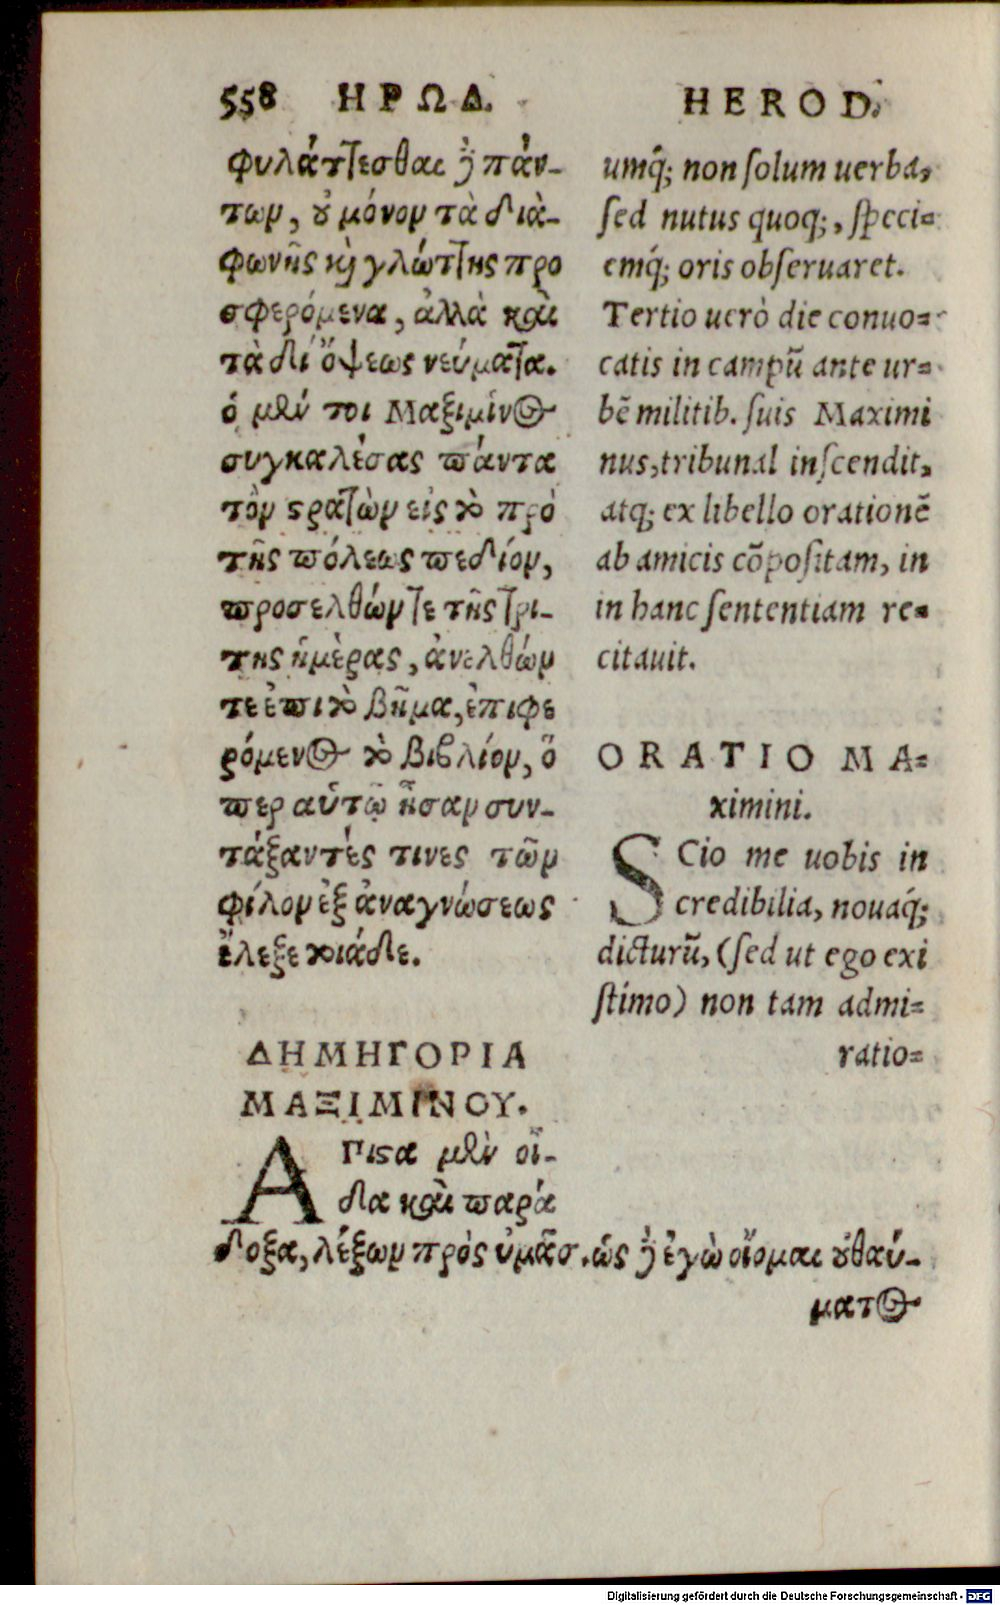 558 ΗΡΩΔ.
φυλάττεσθαι δὲ πάν-
των, οὐ μόνον τὰ διὰ-
φωνῆς καὶ γλώττης προ
σφερόμενα, ἀλλὰ καὶ
τὰ δι' ὄψεως νεύματα.
ὁ μὲν τοι Μαξιμίνος
συγκαλέσας πάντα
τὸν στρατὸν εἰς τὸ πρὸ
τῆς πόλεως πεδίον,
προσελθών τε τῆς τρί-
της ἡμέρας, ἀνελθών
τε ἐπι τὸ βῆμα, ἐπιφε
ρόμενος τὸ βιβλίον, ὅ
περ αὐτῷ ἦσαν συν-
τάξαντές τινες τῶν
φίλον ἐξ ἀναγνώσεως
ἔλεξε τοιάδε.
ΔΗΜΗΓΟΡΙΑ
ΜΑΞΙΜΙΝΟΥ.
ΑΠιστα μὲν οἶ-
δα καὶ παρά
δοξα, λέξων πρὸς ὑμᾶσ. ὡς δὲ ἐγὼ οἴομαι οὐ θαύ-
ματος
HEROD.
umq́; non ſolum uerba,
ſed nutus quoq;, ſpeci=
emq́; oris obſeruaret.
Tertio uerò die conuo=
catis in campũ ante ur=
bẽ militib. ſuis Maximi
nus, tribunal inſcendit,
atq; ex libello orationẽ
ab amicis cõpoſitam, in
in hanc ſententiam re=
citauit.
ORATIO MA=
ximini.
SCio me uobis in
credibilia, nouaq́;
dicturũ, (ſed ut ego exi
ſtimo) non tam admi=
ratio=
Digitalisierung gefördert durch die Deutsche Forschungsgemeinschaft - DFG